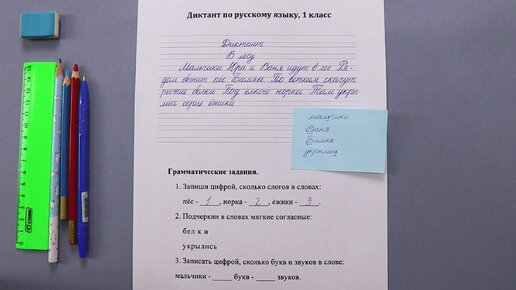 Диктант по русскому языку, 1 класс
Диктант
В лесу
Мальчики Юра и Ваня идут в лес Ря-
дом бежит пёс Бимка. По веткам скачут
рыжие белки. Под ёлкой норка. Там укры
лись серые ёжики.
мальчики
Ваня
Бимка
укрылись
Грамматические задания.
1. Запиши цифрой, сколько слогов в словах:
пёс - 1 , норка - 2 , ежики - 3 .
2. Подчеркни в словах мягкие согласные:
бел к и
укрылись
3. Записать цифрой, сколько букв и звуков в слове:
мальчики - _____ букв - _____ звуков.